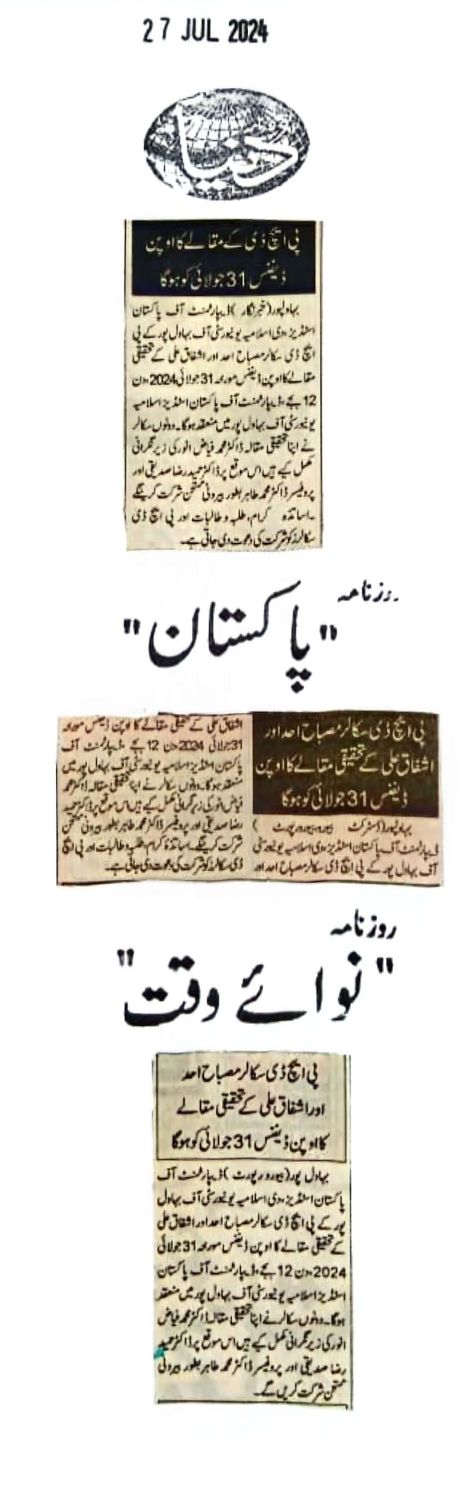 27 JUL 2024
دنیا
پی ایچ ڈی کے مقالے کا اوپن
ڈیفنس 31 جولائی کو ہوگا
بہاولپور (خبرنگار) ڈیپارٹمنٹ آف پاکستان
اسٹڈیز، دی اسلامیہ یونیورسٹی آف بہاول پور کے پی
ایچ ڈی سکالر مصباح احد اور اشفاق علی کے تحقیقی
مقالے کا اوپن ڈیفنس مورخہ 31 جولائی 2024، دن
12 بجے، ڈیپارٹمنٹ آف پاکستان اسٹڈیز اسلامیہ
یونیورسٹی آف بہاول پور میں منعقد ہوگا۔ دونوں سکالر
نے اپنا تحقیقی مقالہ ڈاکٹر محمد فیاض انور کی زیر نگرانی
مکمل کیے ہیں اس موقع پر ڈاکٹر حمید رضا صدیقی اور
پروفیسر ڈاکٹر محمد طاہر بطور بیرونی ممتحن شرکت کرینگے
۔ اساتذہ کرام، طلبہ و طالبات اور پی ایچ ڈی
سکالرز کو شرکت کی دعوت دی جاتی ہے۔
روزنامہ
"پاکستان"
پی ایچ ڈی سکالر مصباح احد اور
اشفاق علی کے تحقیقی مقالے کا اوپن
ڈیفنس 31 جولائی کو ہوگا
بہاولپور (ڈسٹرکٹ بیورو رپورٹ)
ڈیپارٹمنٹ آف پاکستان اسٹڈیز، دی اسلامیہ یونیورسٹی
آف بہاول پور کے پی ایچ ڈی سکالر مصباح احد اور
اشفاق علی کے تحقیقی مقالے کا اوپن ڈیفنس مورخہ
31 جولائی 2024 دن 12 بجے، ڈیپارٹمنٹ آف
پاکستان اسٹڈیز اسلامیہ یونیورسٹی آف بہاول پور میں
منعقد ہوگا۔ دونوں سکالر نے اپنا تحقیقی مقالہ ڈاکٹر محمد
فیاض انور کی زیر نگرانی مکمل کیے ہیں اس موقع پر ڈاکٹر حمید
رضا صدیقی اور پروفیسر ڈاکٹر محمد طاہر بطور بیرونی ممتحن
شرکت کرینگے۔ اساتذہ کرام، طلبہ و طالبات اور پی ایچ
ڈی سکالرز کو شرکت کی دعوت دی جاتی ہے۔
روزنامہ
"نوائے وقت"
پی ایچ ڈی سکالر مصباح احد
اور اشفاق علی کے تحقیقی مقالے
کا اوپن ڈیفنس 31 جولائی کو ہوگا
بہاول پور (بیورو رپورٹ) ڈیپارٹمنٹ آف
پاکستان اسٹڈیز، دی اسلامیہ یونیورسٹی آف بہاول
پور کے پی ایچ ڈی سکالر مصباح احد اور اشفاق علی
کے تحقیقی مقالے کا اوپن ڈیفنس مورخہ 31 جولائی
2024، دن 12 بجے، ڈیپارٹمنٹ آف پاکستان
اسٹڈیز اسلامیہ یونیورسٹی آف بہاول پور میں منعقد
ہوگا۔ دونوں سکالر نے اپنا تحقیقی مقالہ ڈاکٹر محمد فیاض
انور کی زیر نگرانی مکمل کیے ہیں اس موقع پر ڈاکٹر حمید
رضا صدیقی اور پروفیسر ڈاکٹر محمد طاہر بطور بیرونی
ممتحن شرکت کریں گے۔